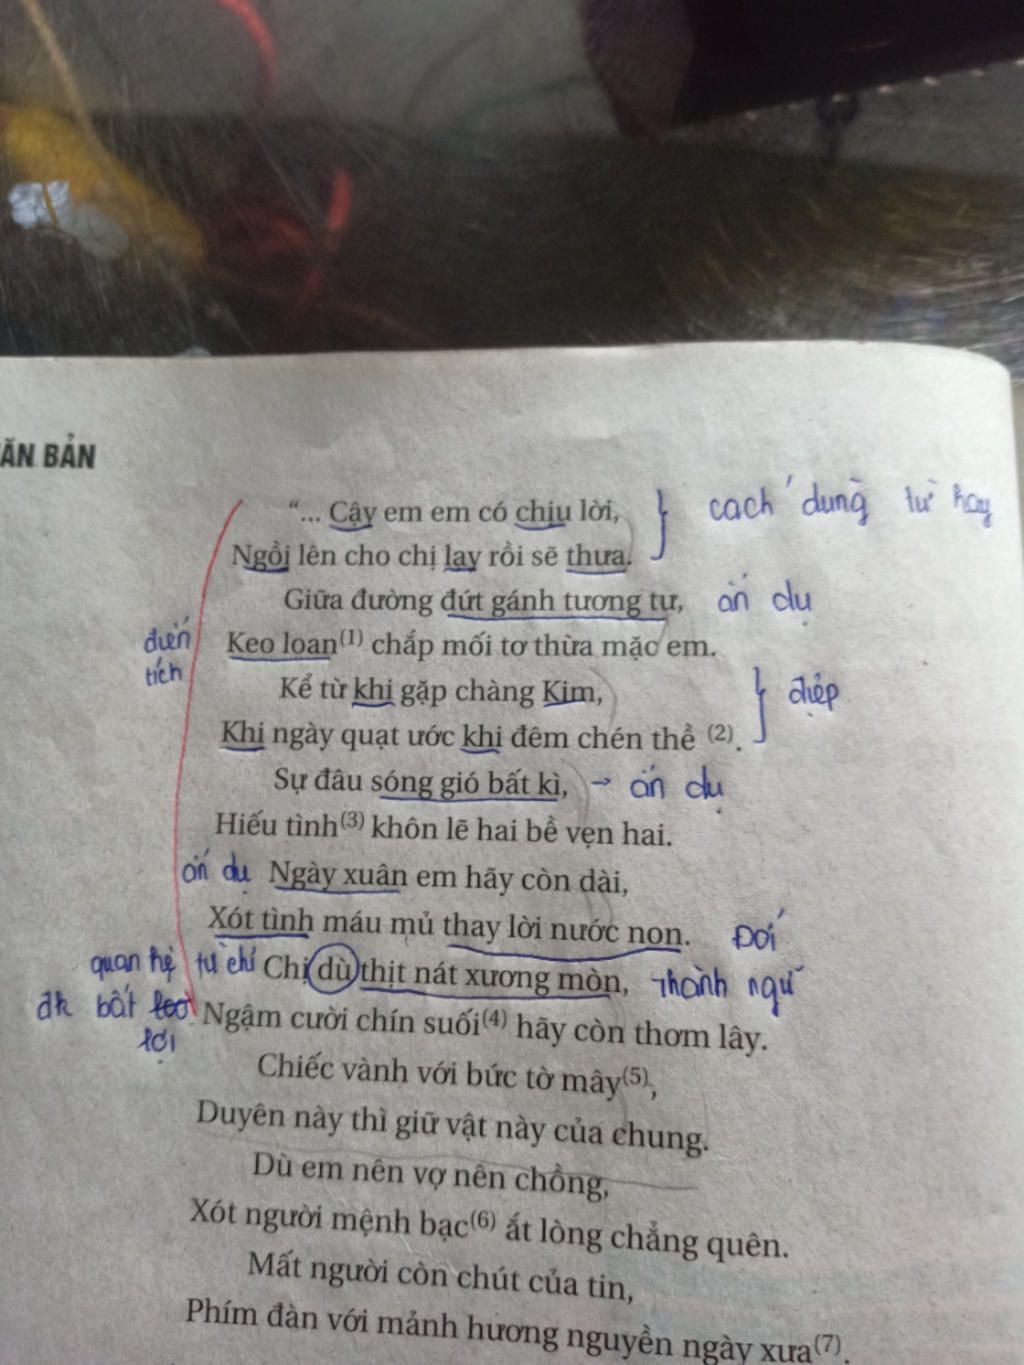 ĂN BẢN
“... Cậy em em có chịu lời, } cách dùng từ hay
Ngồi lên cho chị lạy rồi sẽ thưa.
Giữa đường đứt gánh tương tư, ẩn dụ
điển tích Keo loan(1) chắp mối tơ thừa mặc em.
Kể từ khi gặp chàng Kim, } điệp
Khi ngày quạt ước khi đêm chén thề (2).
Sự đâu sóng gió bất kì, → ẩn dụ
Hiếu tình(3) khôn lẽ hai bề vẹn hai.
ẩn dụ Ngày xuân em hãy còn dài,
Xót tình máu mủ thay lời nước non. Đối
quan hệ từ chỉ Chị dù thịt nát xương mòn, Thành ngữ
đk bất lợi Ngậm cười chín suối(4) hãy còn thơm lây.
Chiếc vành với bức tờ mây(5),
Duyên này thì giữ vật này của chung.
Dù em nên vợ nên chồng,
Xót người mệnh bạc(6) ắt lòng chẳng quên.
Mất người còn chút của tin,
Phím đàn với mảnh hương nguyền ngày xưa(7).